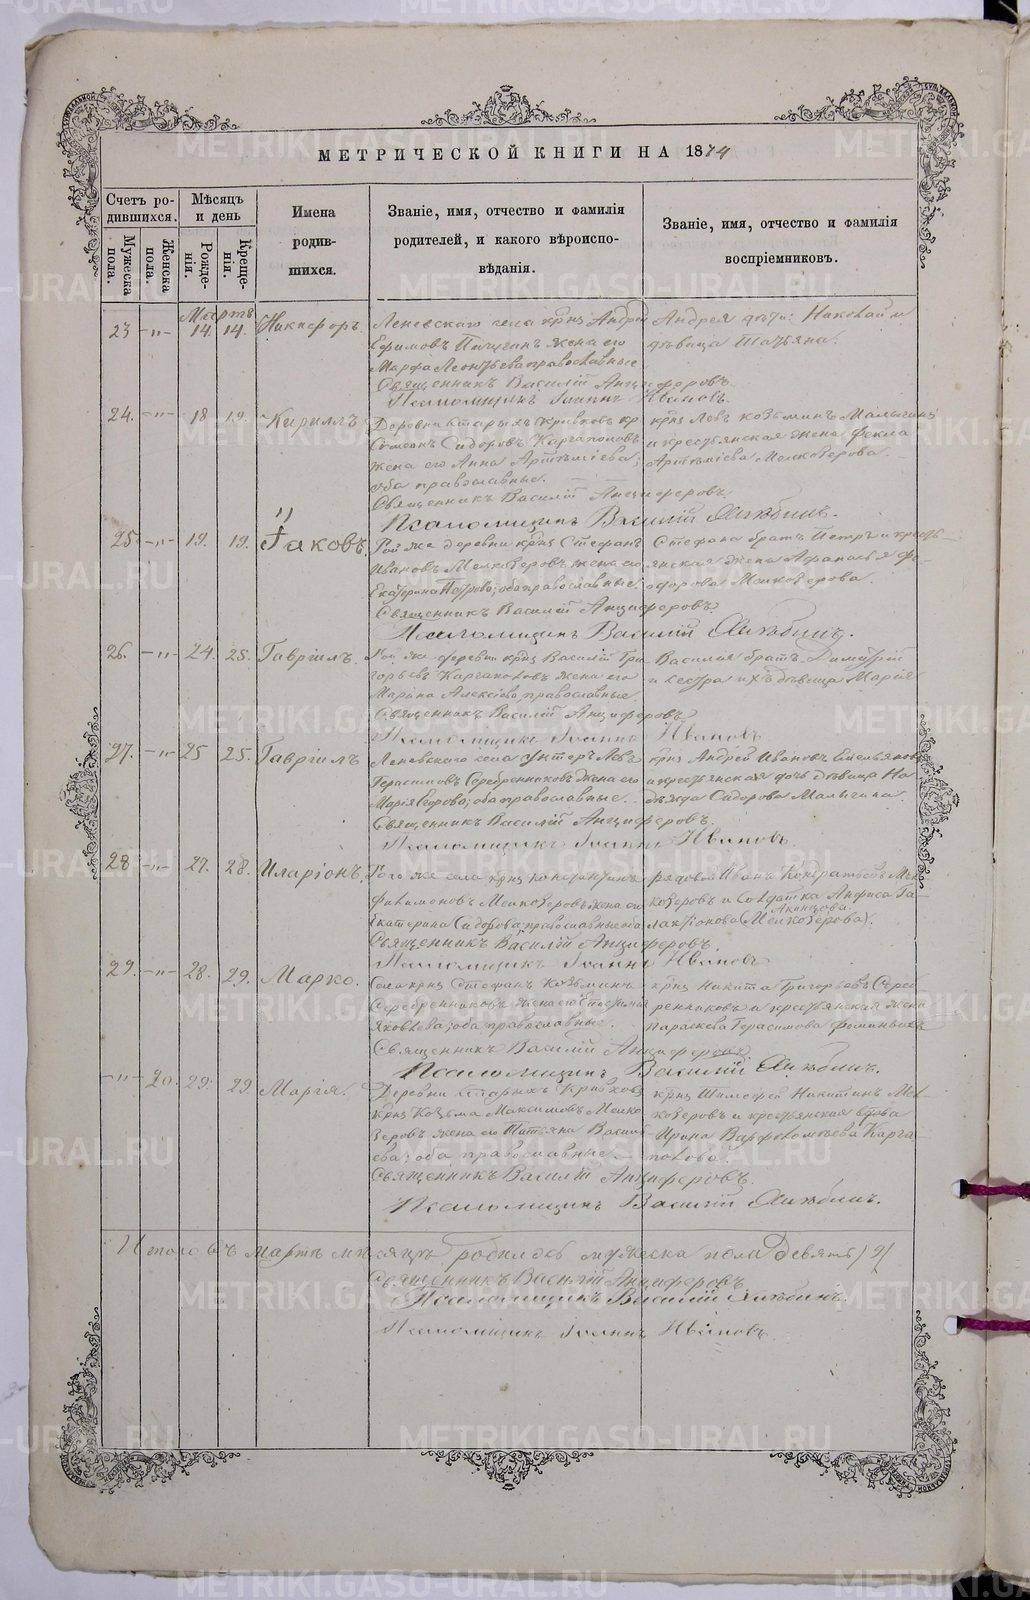 МЕТРИЧЕСКОЙ КНИГИ НА 1874
Счетъ ро-
дившихся.
Мужеска пола.
Женска пола.
Мѣсяцъ
и день
Рожде-
нія.
Креще-
нія.
Имена
родив-
шихся.
Званіе, имя, отчество и фамилія
родителей, и какого вѣроиспо-
вѣданія.
Званіе, имя, отчество и фамилія
воспріемниковъ.
Мартъ
23 -„- 14. 14. Никифоръ.
Леневскаго села крнз Андрей
Ефимовъ жена его
Марфа Леонтьева православные
Андрея дѣти: Николай и
дѣвица Татьяна.
Священникъ Василій Анциферовъ
Псаломщикъ Іоаннъ Ивановъ.
24. -„- 18 19. Кириллъ
Деревни Старыхъ Кривковъ кр
Симеонъ Сидоровъ Каргаполовъ
жена его Анна Артѣміева;
оба православные.
крнз Левъ Козьминъ Малыгинъ
и крестьянская жена Фекла
Артѣміева Мелкозерова.
Священникъ Василій Анциферовъ
Псаломщикъ Василій Хлѣбинъ.
25 -„- 19. 19. Іаковъ.
Той же деревни крнз Стефанъ
Ивановъ Мелкозеровъ жена его
Екатерина Петрова; оба православные.
Стефана братъ Петръ и кресть-
янская жена Афанасья Фе-
одорова Мелкозерова.
Священникъ Василій Анциферовъ.
Псаломщикъ Василій Хлѣбинъ.
26. -„- 24. 25. Гавріилъ.
Той же деревни крнз Василій Гри-
горьевъ Каргаполовъ жена его
Марина Алексіева православные
Василія братъ Димитрій
и сестра ихъ дѣвица Марія
Священникъ Василій Анциферовъ
Псаломщикъ Іоаннъ Ивановъ
27. -„- 25 25. Гавріилъ
Леневскаго села Левъ
Герасимовъ Серебренниковъ жена его
Марія; оба православные.
крнз Андрей Ивановъ Емельяновъ
и крестьянская дочь дѣвица На-
дѣжда Сидорова Малыгина.
Священникъ Василій Анциферовъ.
Псаломщикъ Іоаннъ Ивановъ
28 -„- 27. 28. Иларіонъ.
Того же села крнз Константинъ
Филимоновъ Мелкозеровъ жена его
Екатерина Сидорова; православные оба
рядовой Иванъ Кондратьевъ Мел-
козеровъ и солдатка Анфиса Га-
лактіонова (Мелкозерова).
Священникъ Василій Анциферовъ.
Псаломщикъ Іоаннъ Ивановъ
29. -„- 28. 29. Марко.
Села крнз Стефанъ Козьминъ
Серебренниковъ жена его
Яковлева; оба православные.
крнз Никита Григорьевъ Сереб-
ренниковъ и крестьянская жена
Параскева Герасимова
Священникъ Василій Анциферовъ
Псаломщикъ Василій Хлѣбинъ.
-„- 20. 29. 29. Марія.
Деревни Старыхъ Кривковъ
крнз Козьма Максимовъ Мелко-
зеровъ жена его Татьяна Василь-
ева; оба православные.
крнз Тимофей Никитинъ Мел-
козеровъ и крестьянская вдова
Ирина Варфоломѣева Карга-
полова.
Священникъ Василій Анциферовъ.
Псаломщикъ Василій Хлѣбинъ.
Итого въ Мартѣ мѣсяцѣ родилось мужеска пола девять /9/
Священникъ Василій Анциферовъ
Псаломщикъ Василій Хлѣбинъ.
Псаломщикъ Іоаннъ Ивановъ
METRIKI.GASO-URAL.RU